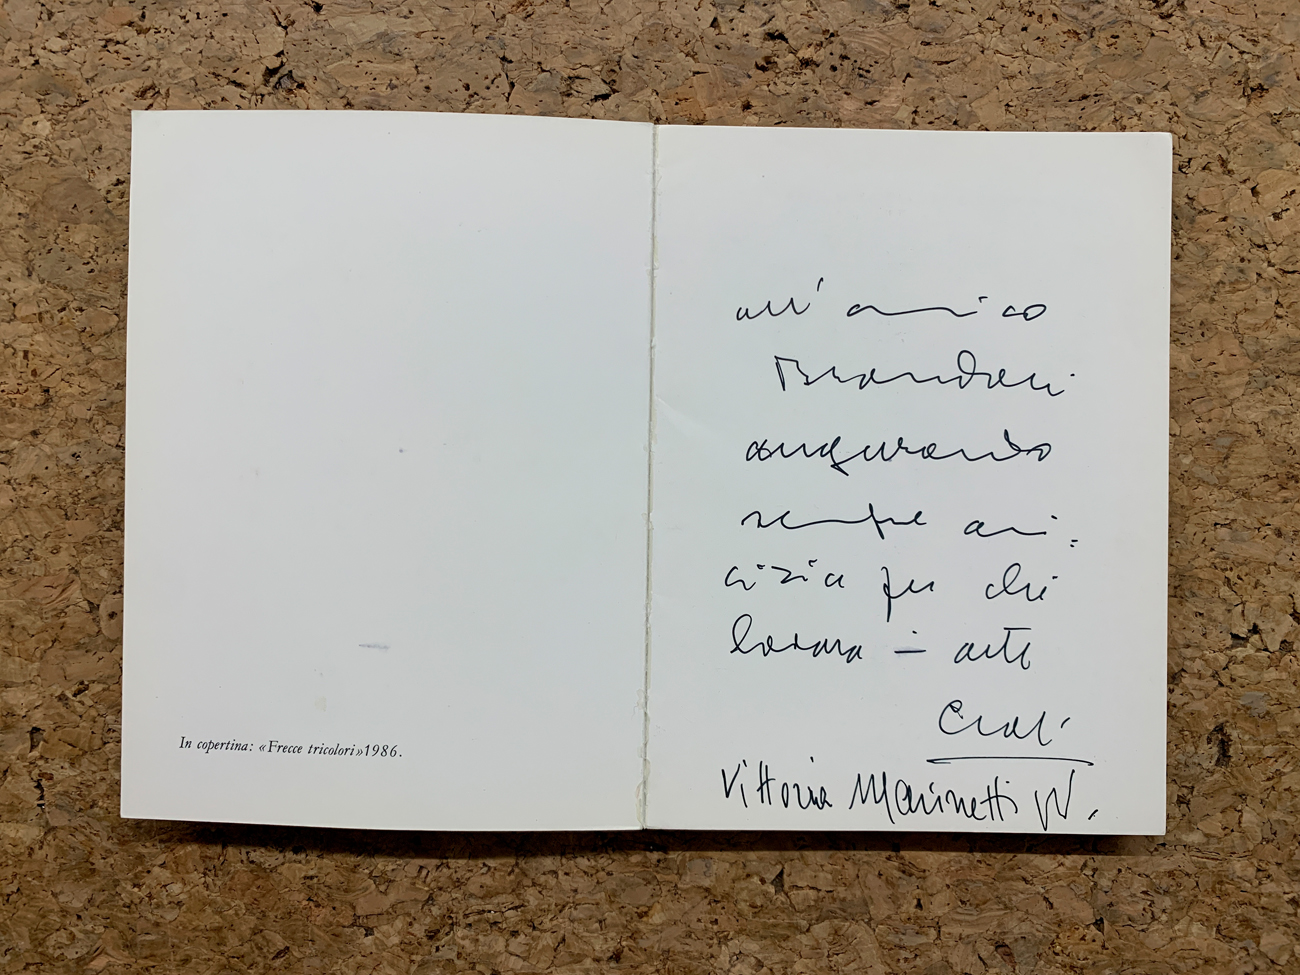 In copertina: «Frecce tricolori»1986.
all'amico
Brandoli
augurando
sempre ami=
cizia per chi
lavora in arte
Crali
Vittoria Marinetti